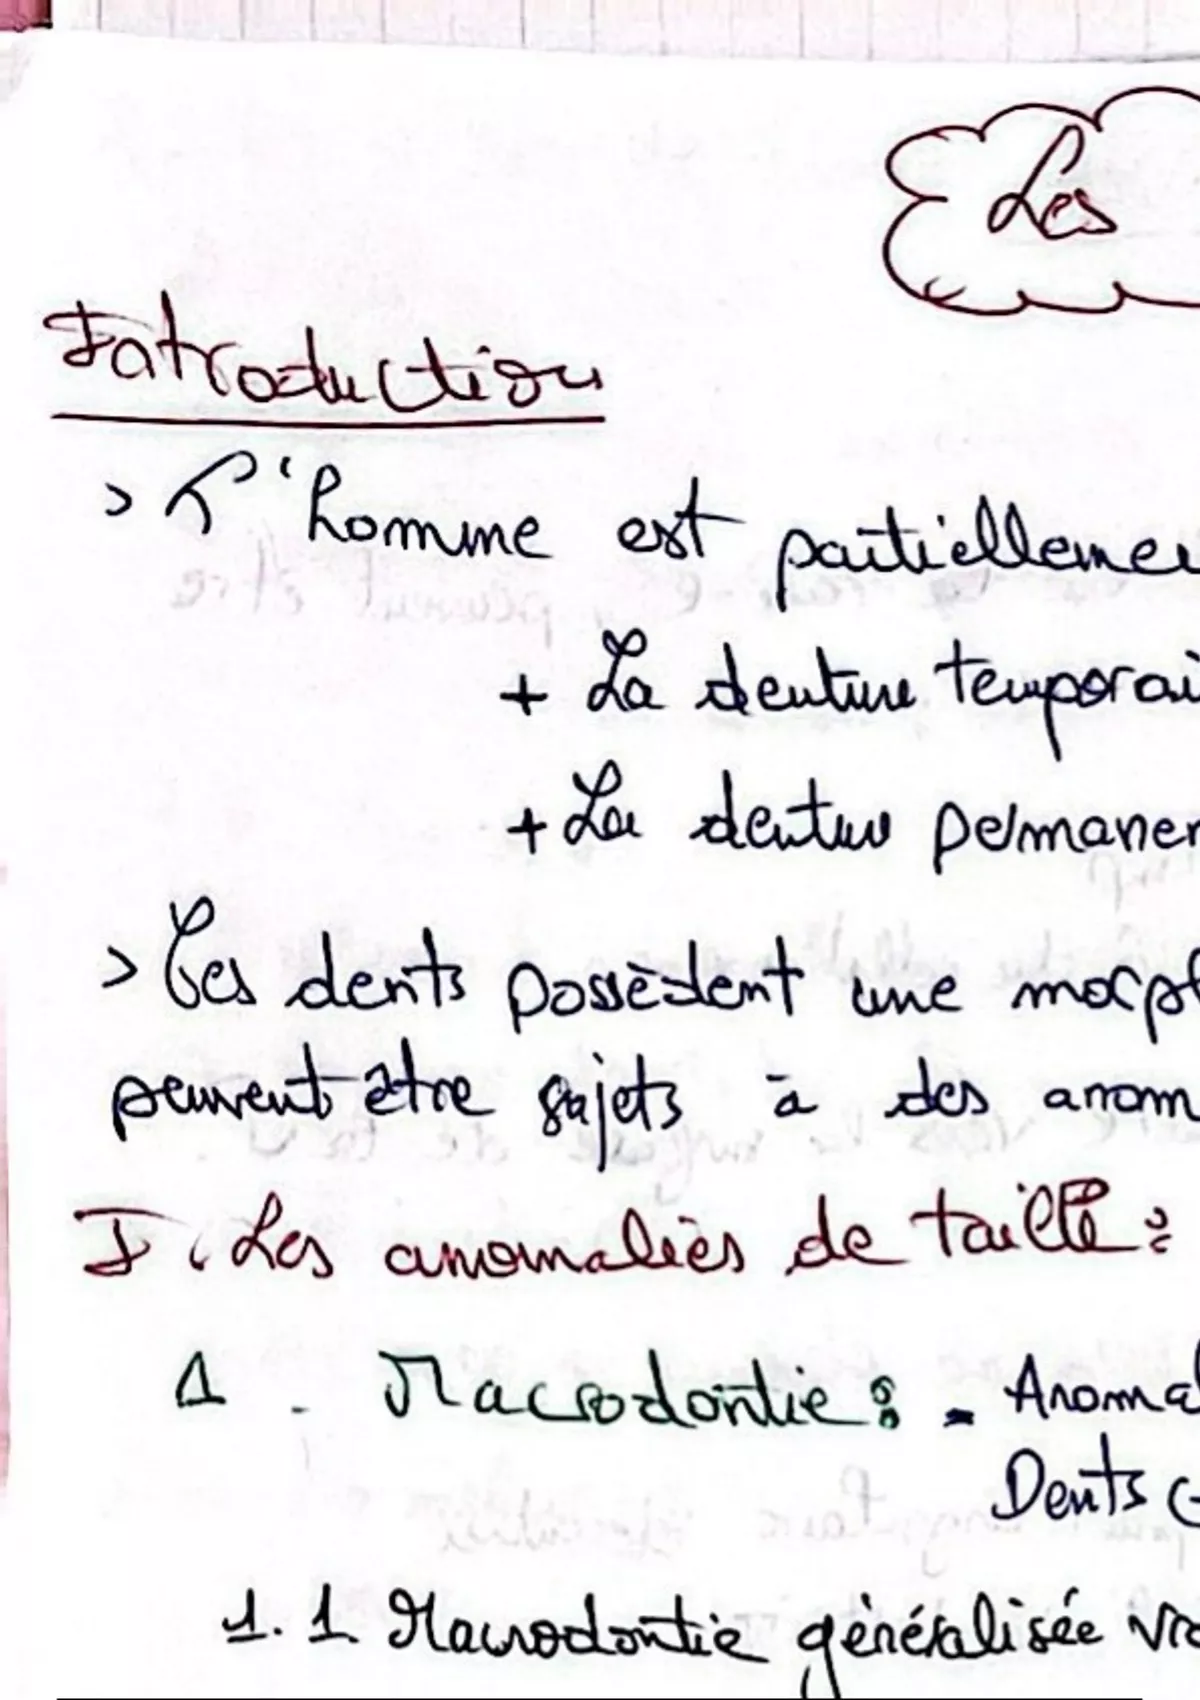 Les
Introduction
> L'homme est partiellemen
+ La denture temporai
+ La denture permanen
> Ces dents possèdent une morph
peuvent être sujets à des anom
I. Les anomalies de taille :
1. Macrodontie : - Anomal
Dents
1.1 Macrodontie généralisée vra